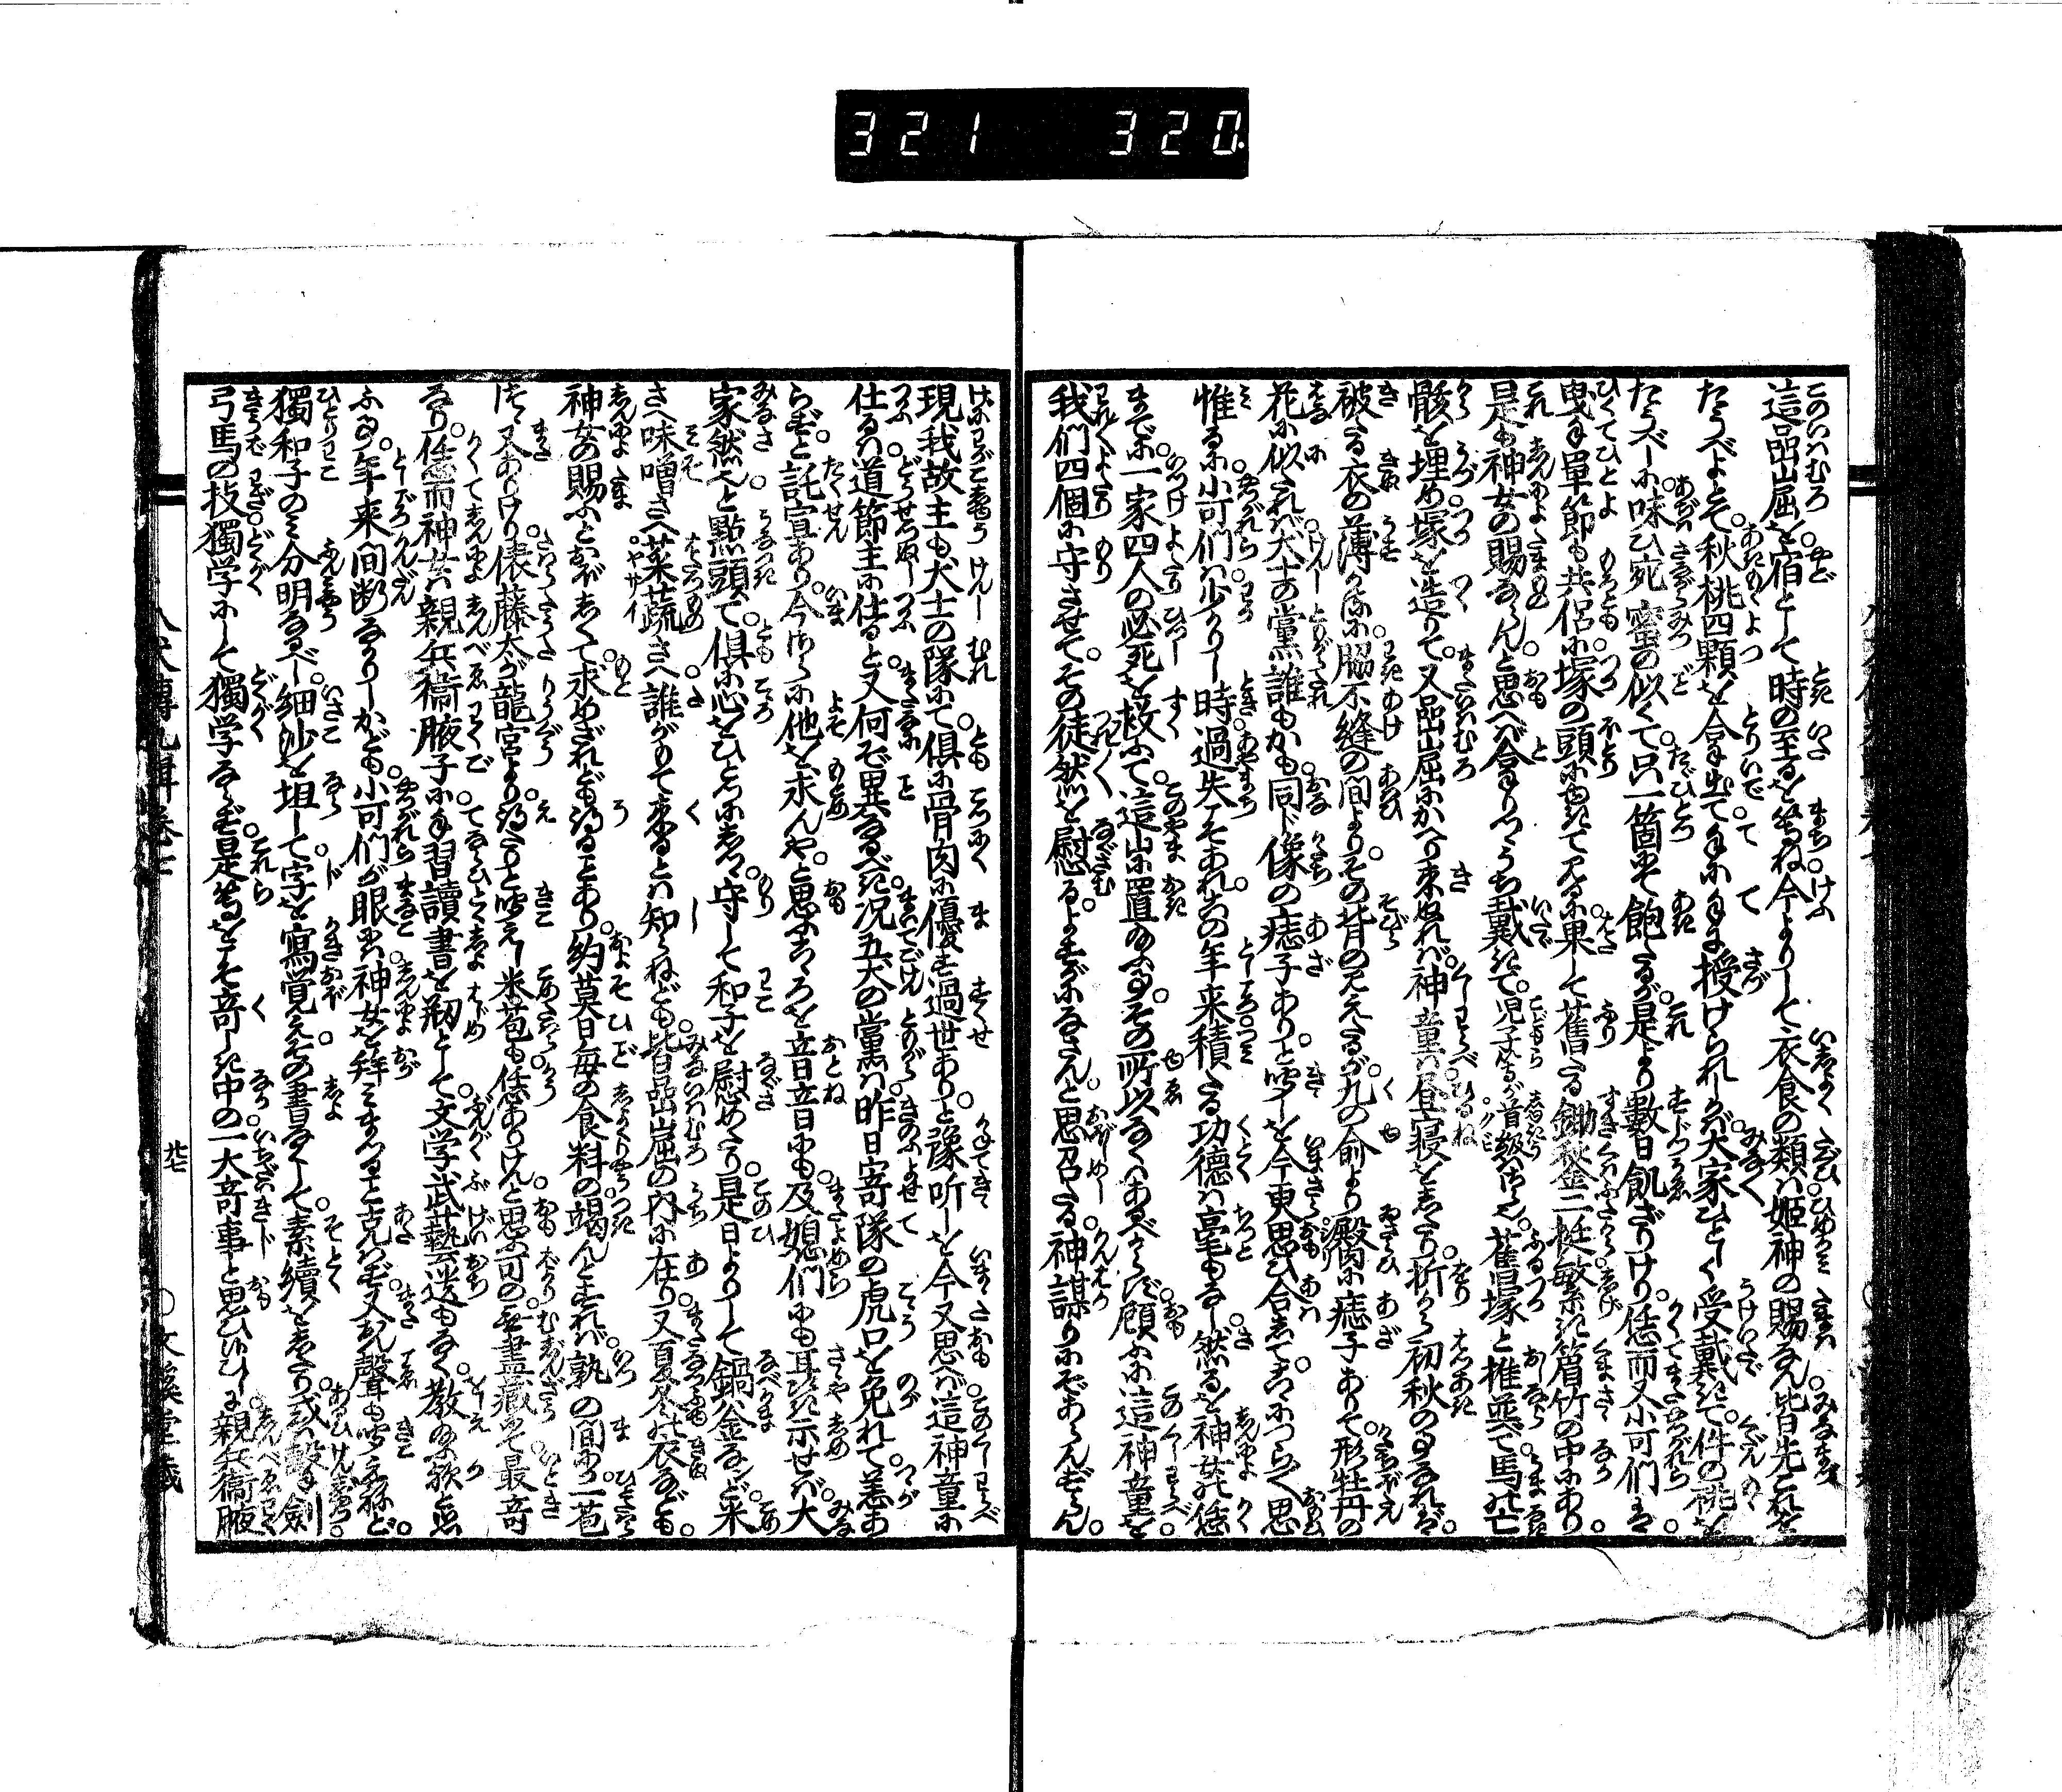 321 320
這嵒屈を宿として時の至るをまちね今よりして衣食の類は姫神の賜なん皆先これを
たうべよとて秋桃四顆をとり出て手に手に授けられしが大家ひとしく受戴きて件の桃を
たうべしに味ひ宛蜜の似くて只一箇にて飽たるが是より數日飢ざりけり恁而又小可們は
曳手單節も共侶に塚の頭にゆきて見るに果して舊たる鋤秋釜二挺繁き篁竹の中にあり
是も神女の賜ならんと思へば拿りつうち戴きて児子等が首級はさら也舊塚と推並べて馬の亡
骸を埋め塚を造りて又嵒屈にかへり来ぬれば神童は昼寝をしたり折から初秋の事なれば
破たる衣の薄ければ脇不縫の間よりその背の見えたるが九の兪より臀肉に痣子ありて形牡丹の
花に似たれば犬士の黨誰もかも同じ像の痣子ありと聞しを今更思ひ合してつらつら思
惟るに小可們は少かりし時過失こそあれその年来積たる功德は毫もなし然るを神女の恁
まで一家四人の必死を救ふて這山に置給ふ事その所以なくはあるべからず顧ふに這神童を
我们四個に守させてその徒然を慰るよすがになさんと思召たる神謀りにぞあらんずらん
現我故主も犬士の隊にて倶に骨肉に優す過世ありと豫听しを今又思へば這神童に
仕るは道節主に仕ると又何ぞ異なるべき況五犬の黨は昨日寄隊の虎口を免れて恙あ
らずと託宣あり今さらに他を求んやと思ふこころを音音にも及媳们にも耳語示せば大
家然也と點頭て倶に心をひとつにしつ守して和子を慰めたり是日よりして鍋釜など米
さへ味噌さへ菜蔬さへ誰がもて来るとは知らねども皆嵒屈の内に在り又夏冬の衣なども
神女の賜ふとおぼしくて求めざれども得ることあり約莫日毎の食料の竭んとすれば孰の間にか一苞
づつ又ありけり俵藤太が龍宮より得たりと聞えし米苞も恁ありけんと思ふ可の無盡藏にて最奇
なり恁而神女は親兵衞腋子に手習讀書を初として文学武藝送もなく教給ふ歟と思
ふのみ年来間断なかりしかども小可們が眼には神女を拜みまつること克はず又玉聲も聞えねど
獨和子のみ分明なるべし細沙を坦して字を寫覚え又書なくして素讀をしたり或は撃劍
弓馬の技獨学にして獨学ならず是等をこそ奇しき中の一大奇事と思ひ侍ひしに親兵衞腋
八犬傳九輯卷七
廿七
文溪堂藏